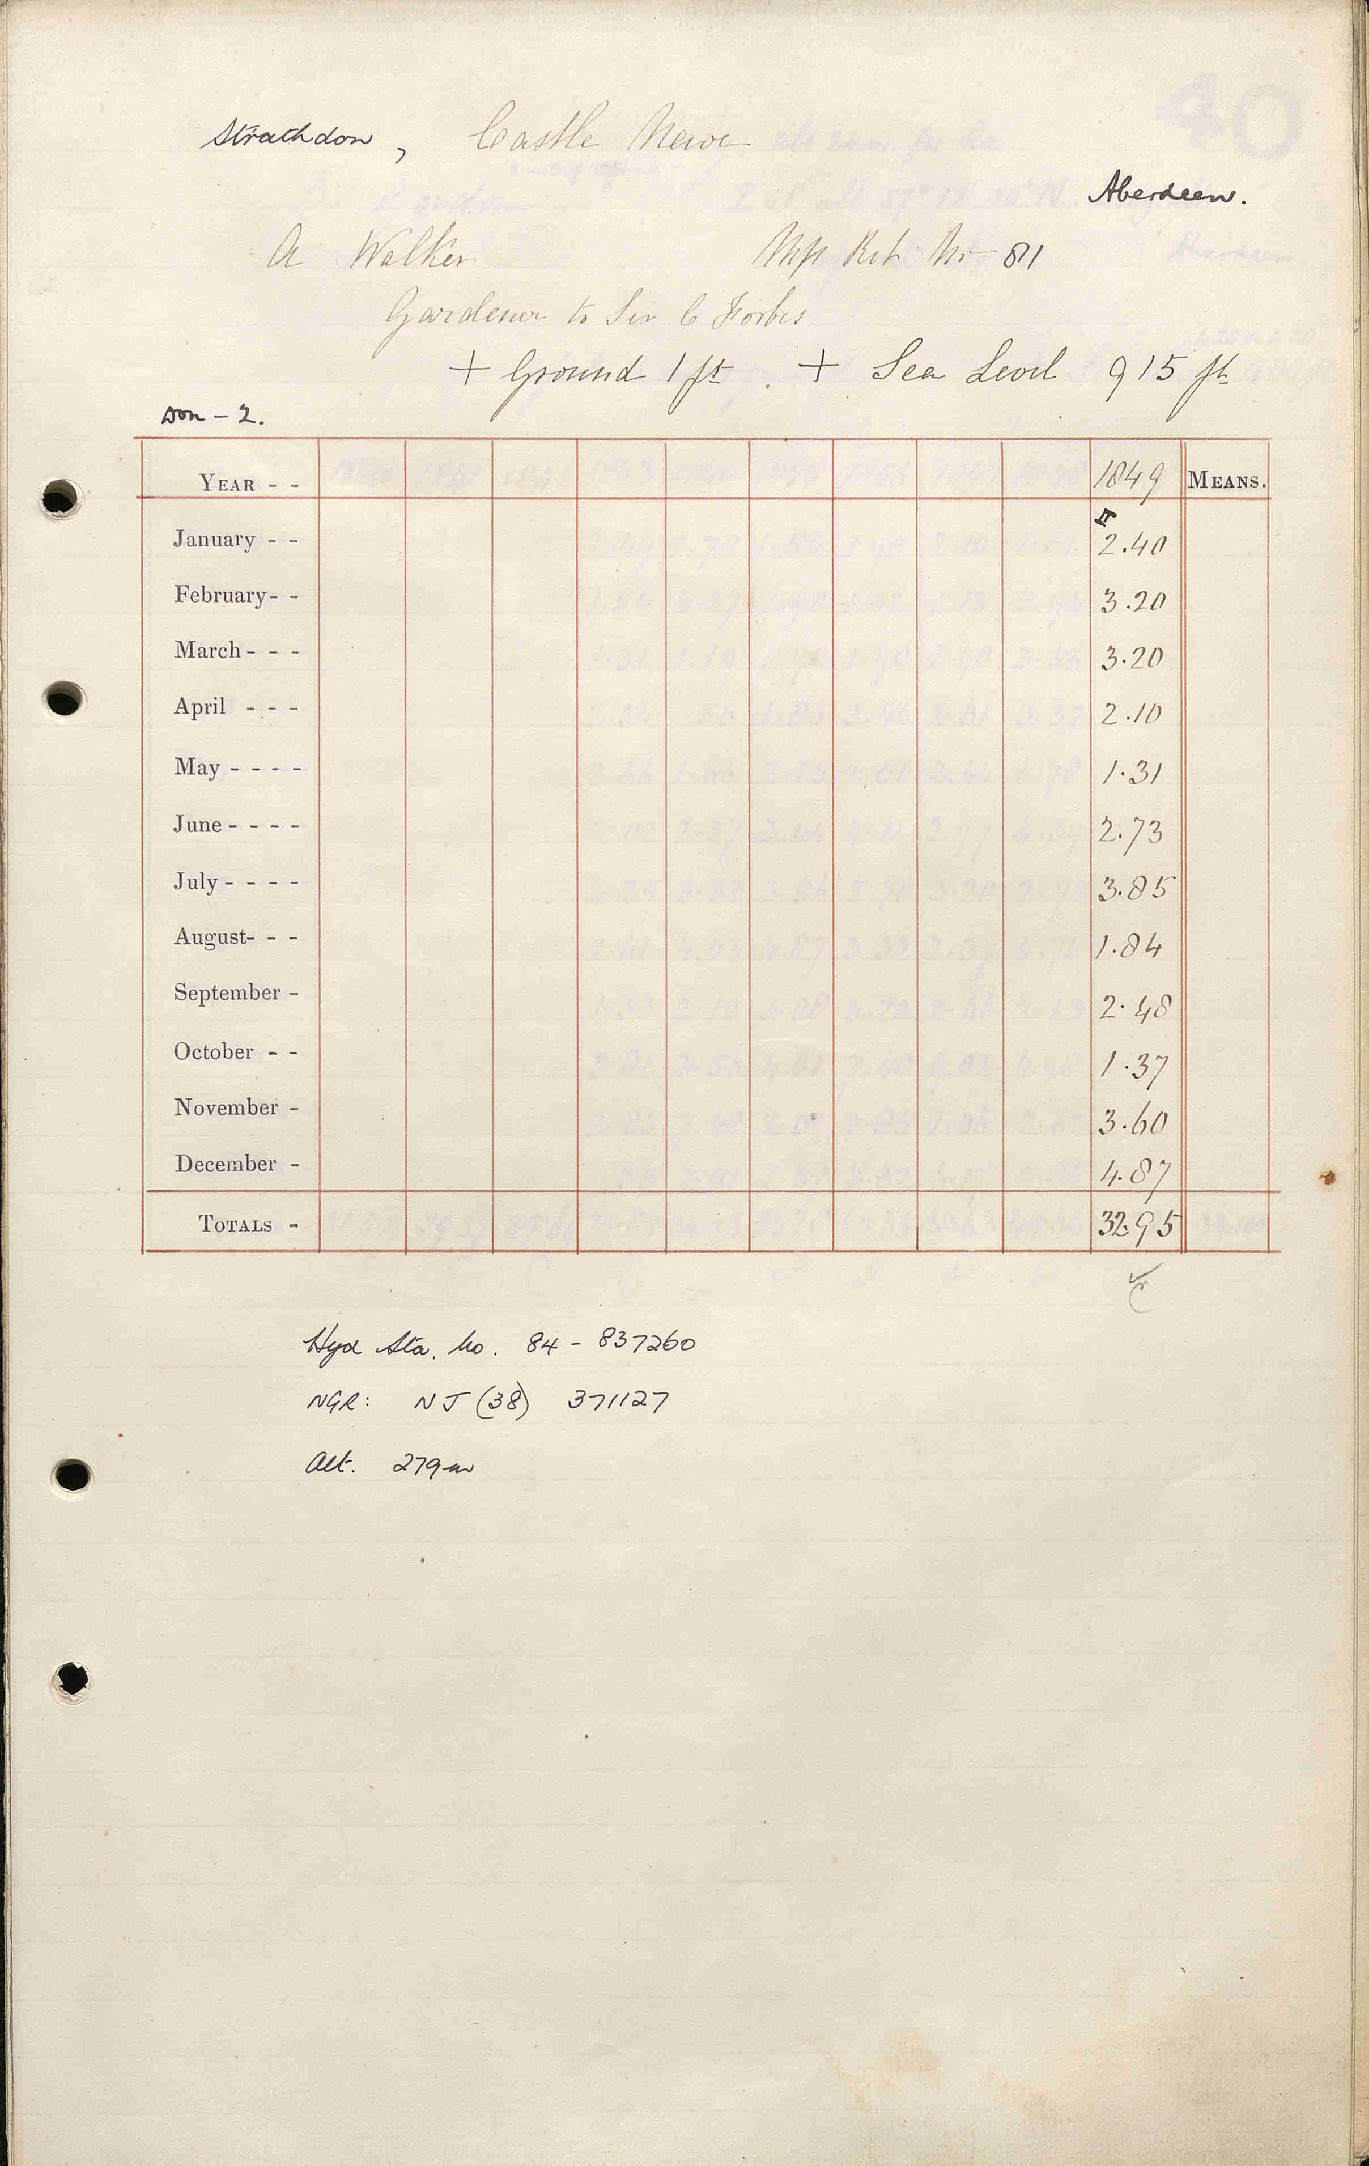 Strathdon, Castle Newe
Aberdeen.
A Walker
Gardener to Sir C Forbes
+ Ground 1 ft. + Sea Level 915 ft
Don - 2.
YEAR - - 1849 MEANS.
January - - 2.40
February - - 3.20
March - - - 3.20
April - - - 2.10
May - - - - 1.31
June - - - - 2.73
July - - - - 3.85
August - - - 1.84
September - 2.48
October - - 1.37
November - 3.60
December - 4.87
TOTALS - 32.95
Hyd Sta. No. 84 - 837260
NGR: NJ (38) 371127
Alt. 279m